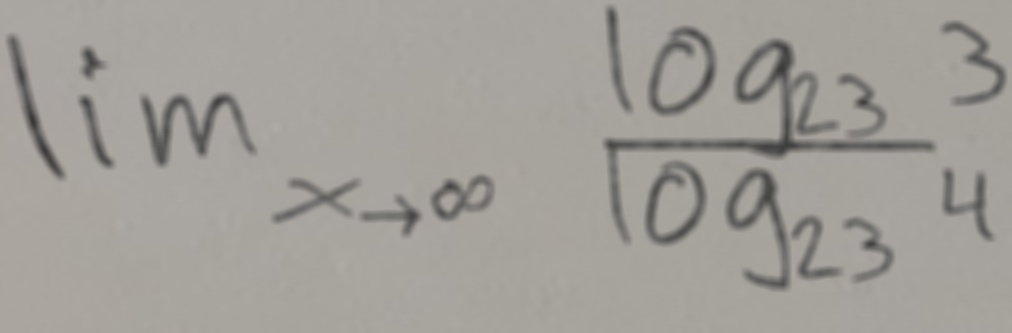 lim x→∞ log₂₃ 3 / log₂₃ 4